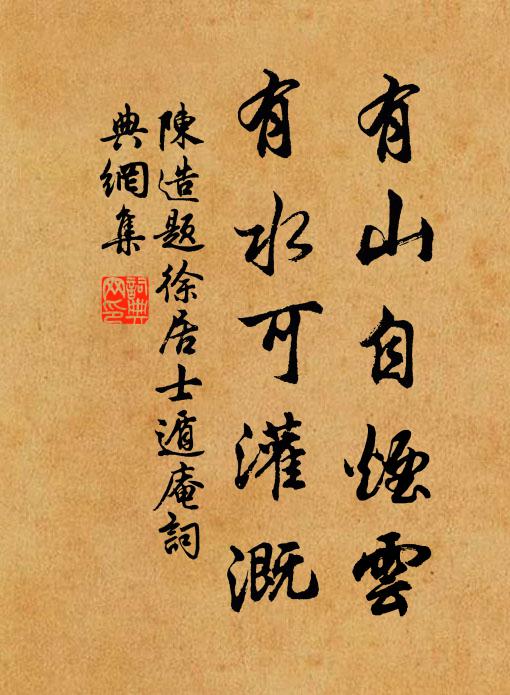 有山自煙雲
有水可灌溉
陳造題徐居士遁庵詞
典網集
詞典
网印